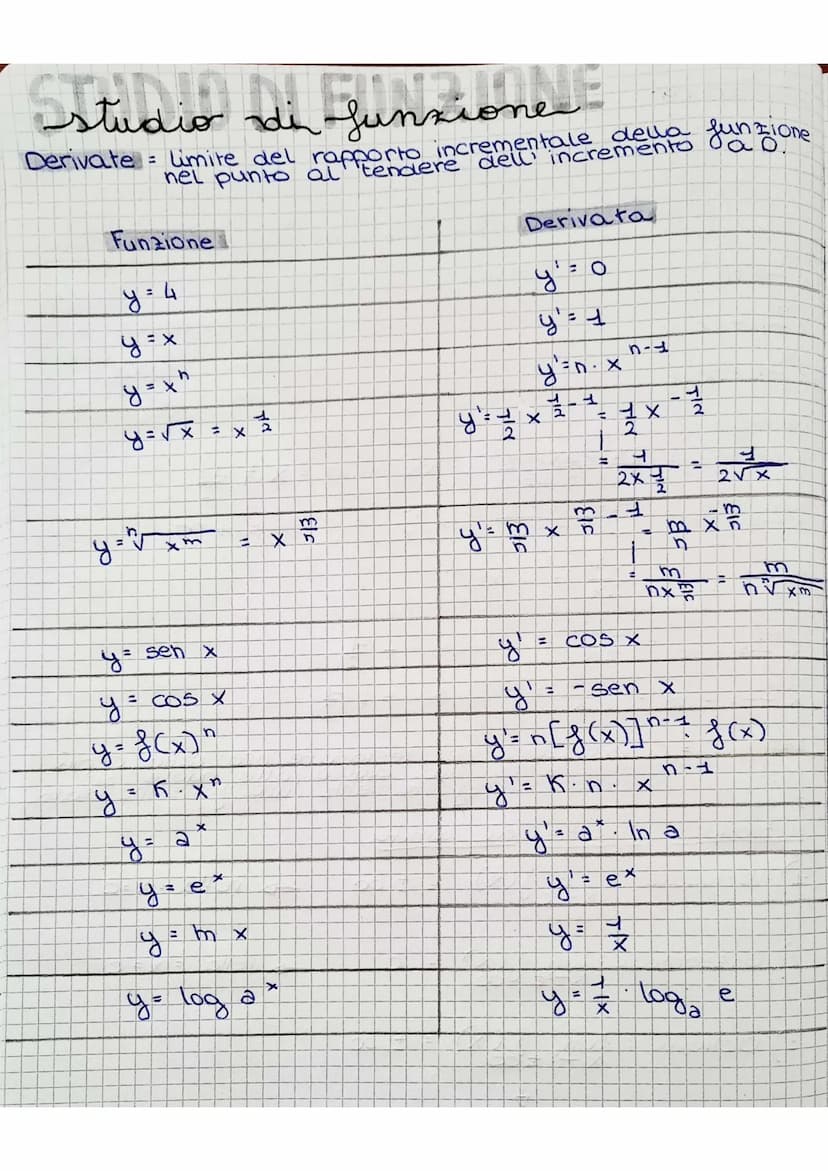 STUDIO DI FUNZIONE
studio di funzione
Derivate = limite del rapporto incrementale della funzione
nel punto al tendere dell'incremento a 0.
Funzione Derivata
y = 4 y' = 0
y = x y' = 1
y = xⁿ y' = n · xⁿ⁻¹
y = √x = x^(1/2) y' = 1/2 x^(1/2 - 1) = 1/2 x^(-1/2)
= 1/(2x^(1/2)) = 1/(2√x)
y = ⁿ√(x^m) = x^(m/n) y' = m/n x^(m/n - 1) = m/n x^(-m/n)
= m/(nx^(m/n)) = m/(n ⁿ√(x^m))
y = sen x y' = cos x
y = cos x y' = -sen x
y = f(x)ⁿ y' = n[f(x)]ⁿ⁻¹ · f(x)
y = K · xⁿ y' = K · n · xⁿ⁻¹
y = a^x y' = a^x · ln a
y = e^x y' = e^x
y = m x y = 1/x
y = log a^x y = 1/x · logₐ e